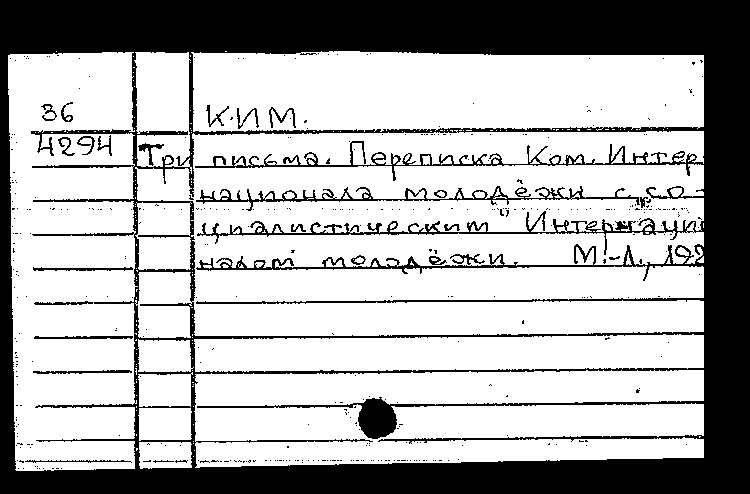 36
К.И.М.
4294
Три письма. Переписка Ком. Интер
национала молодёжи с „со-
циалистическим" Интернацио
налом молодёжи. М.-Л., 192